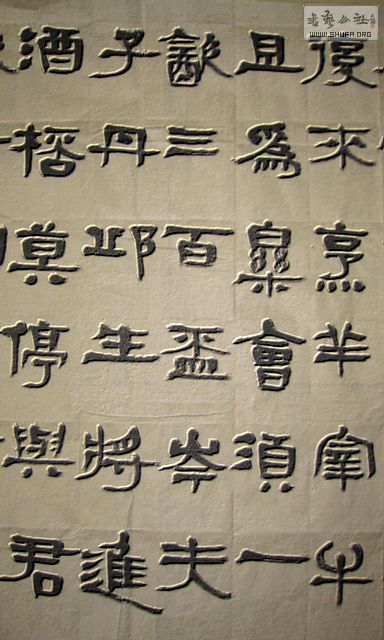 復來烹羊宰牛
且為樂會須一
飲三百盃岑夫
子丹邱生將進
酒桮莫停與君
書藝公社
WWW.SHUFA.ORG